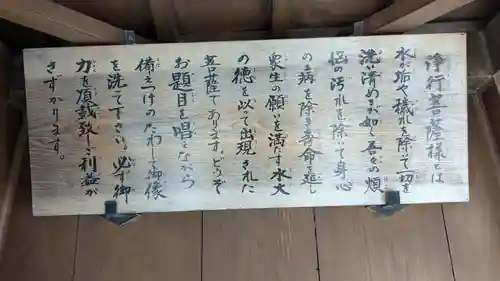 浄行菩薩様とは
水が垢や穢れを除いて一切を
洗い清めるが如く吾々の煩
悩の汚れを除いて身心
の病を除き寿命を延し
衆生の願いを満たす水大
の徳を以って出現された
菩薩であります。どうぞ
お題目を唱えながら
備えつけのたわしで御像
を洗って下さい。必ず御
力を頂戴致しご利益が
さずかります。